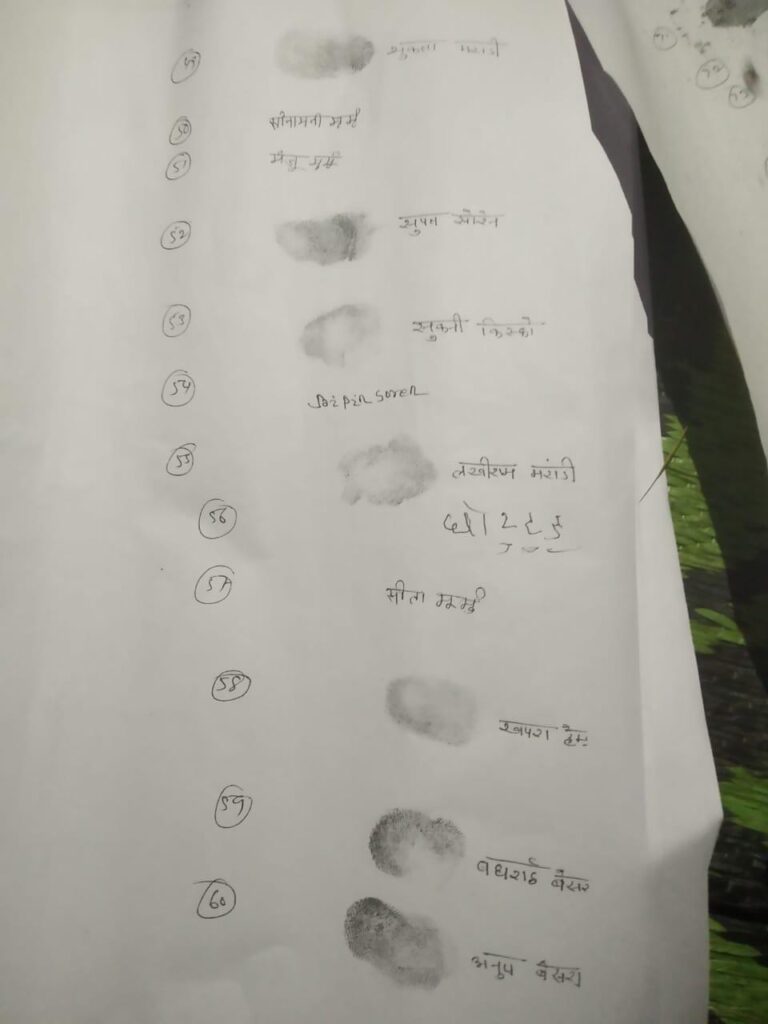 49 सुकला मरांडी
50 सोनामनी मुर्मू
51 मंजू मुर्मू
52 सुपन सोरेन
53 सुकनी किस्को
54 Bipin Soren
55 लखीराम मरांडी
56
57 सीता मुर्मू
58 खपरा हेम
59 वधराई बेसरा
60 अनुप बेसरा
51
52
53